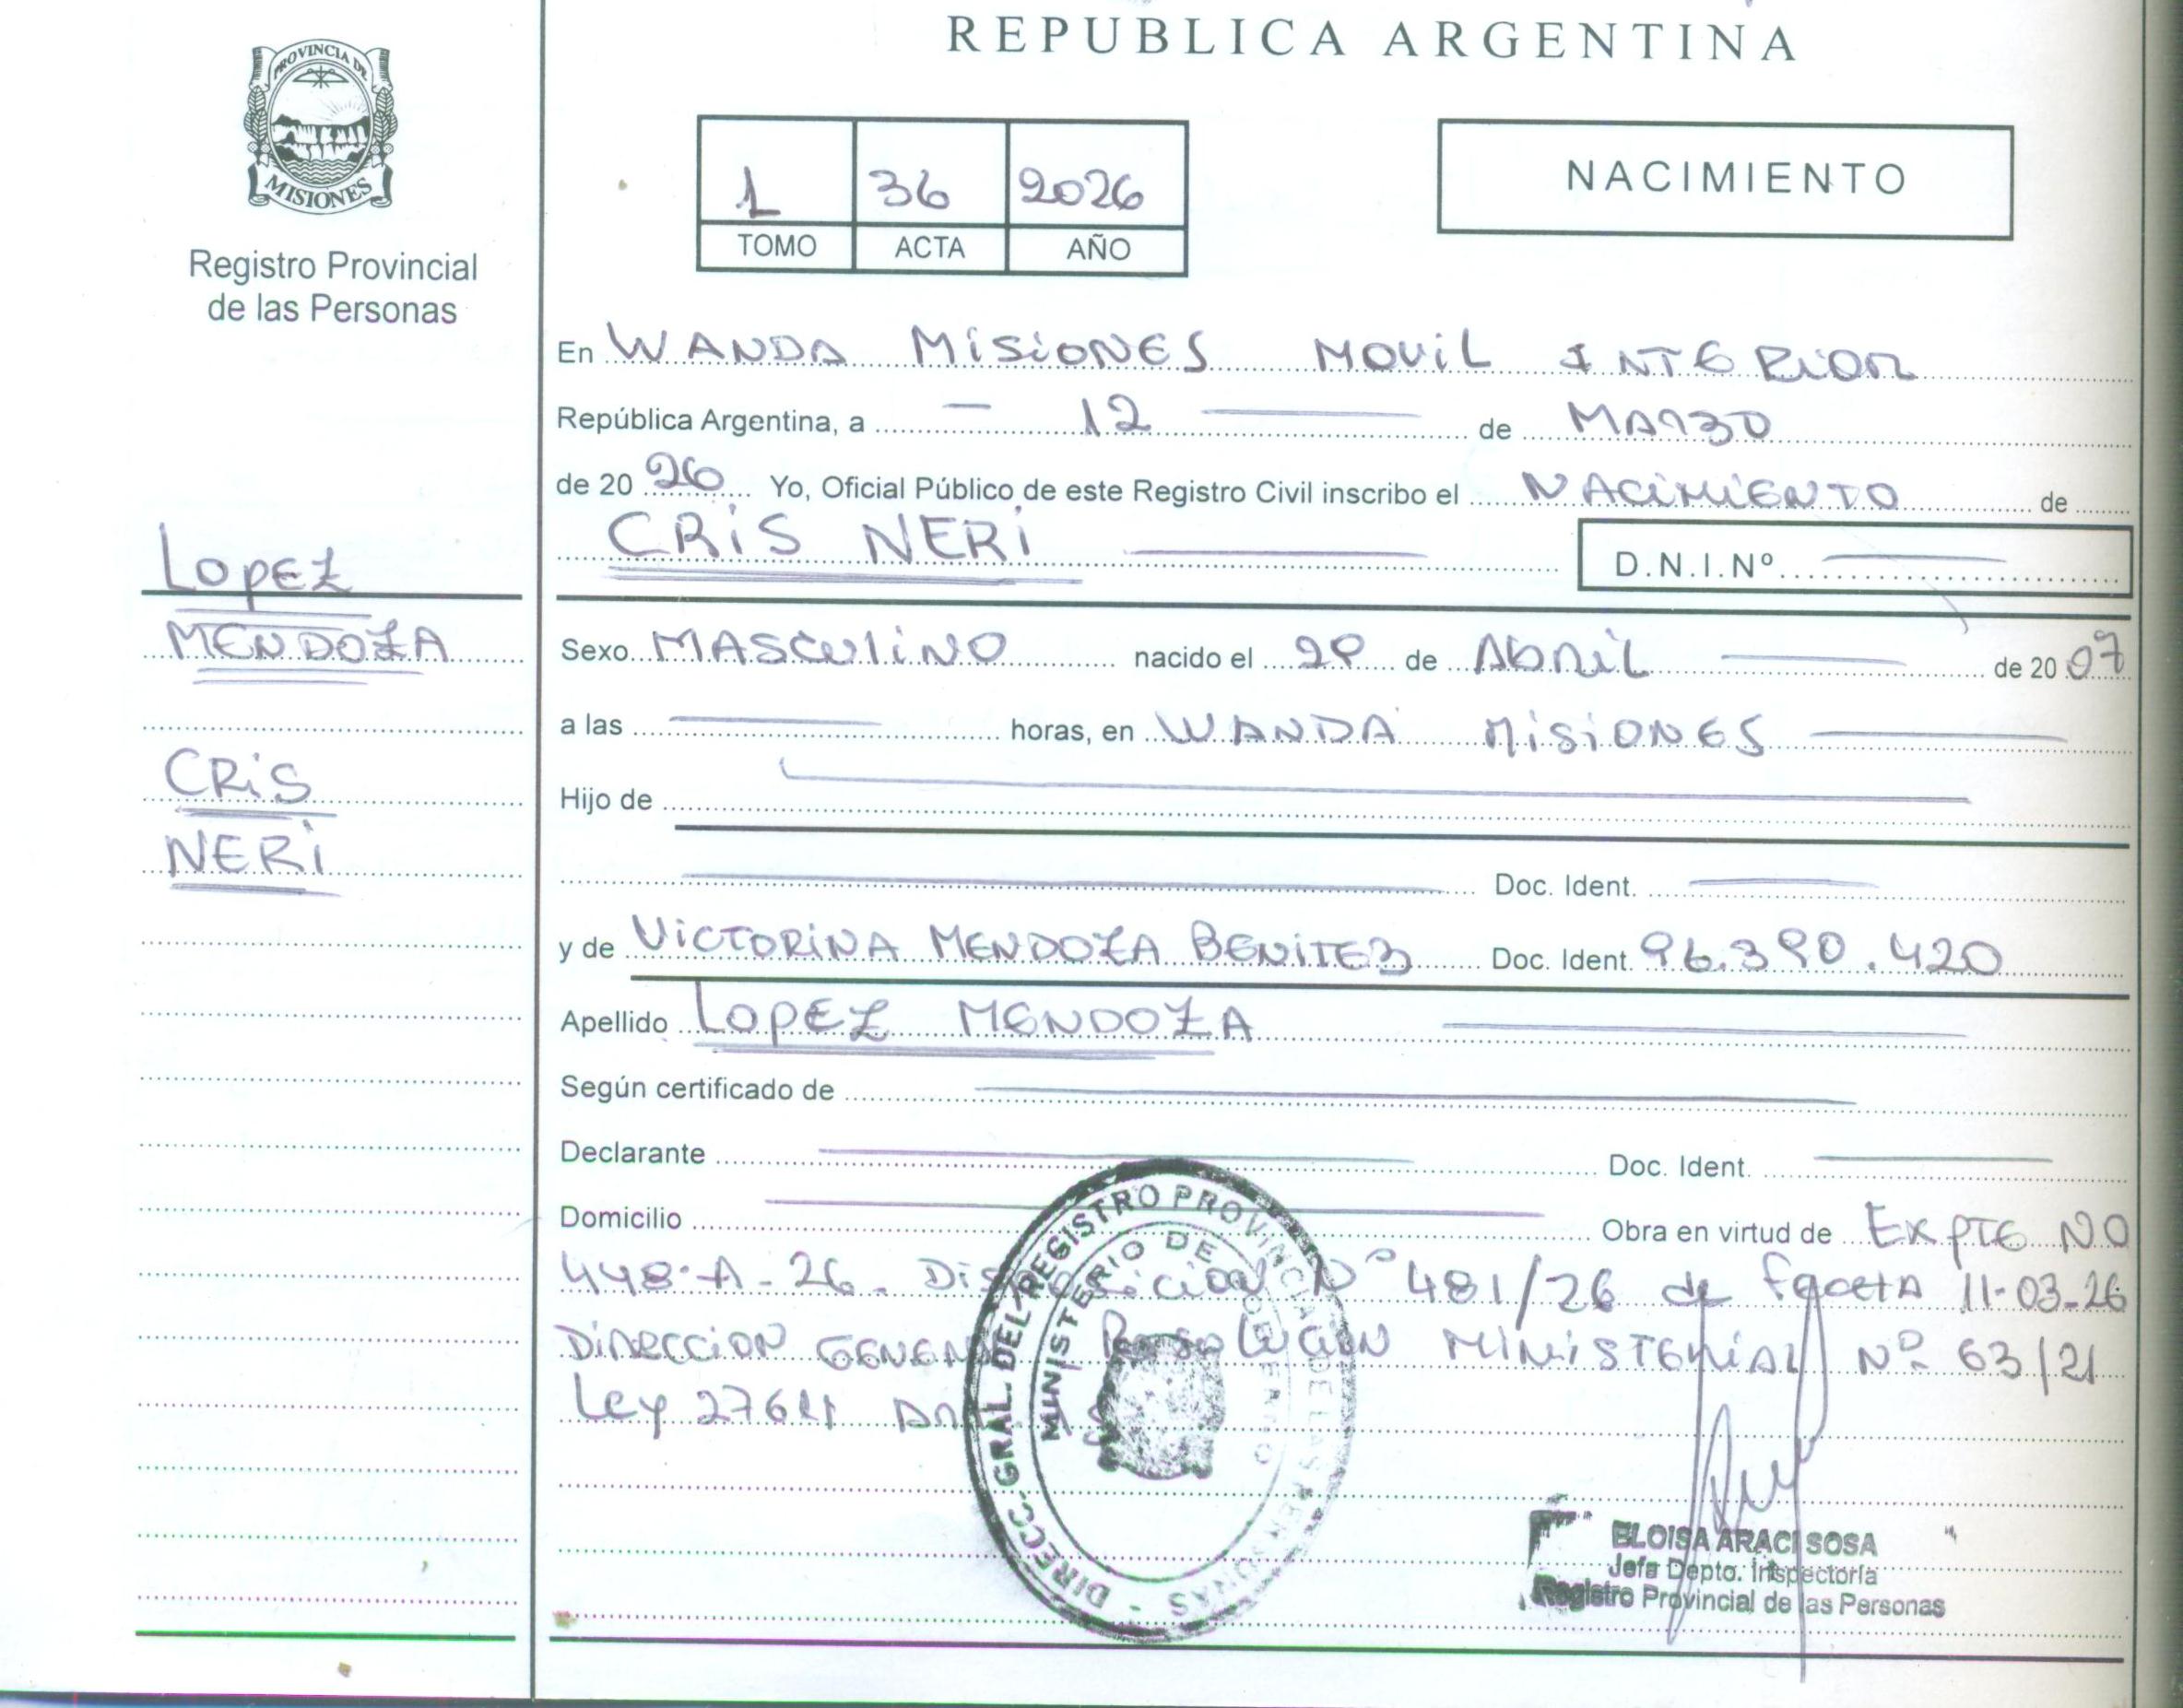 REPUBLICA ARGENTINA
PROVINCIA DE
MISIONES
Registro Provincial
de las Personas
1 36 2026
TOMO ACTA AÑO
NACIMIENTO
En WANDA MISIONES MOVIL INTERIOR
República Argentina, a — 12 — de MARZO
de 20 26 Yo, Oficial Público de este Registro Civil inscribo el NACIMIENTO de
CRIS NERI — D.N.I.Nº —
LOPEZ
MENDOZA
CRIS
NERI
Sexo MASCULINO nacido el 29 de Abril — de 20 07
a las — horas, en WANDA MISIONES —
Hijo de —
— Doc. Ident. —
y de VICTORINA MENDOZA BENITEZ Doc. Ident. 96.390.420
Apellido LOPEZ MENDOZA —
Según certificado de —
Declarante — Doc. Ident. —
Domicilio — Obra en virtud de EXPTE NO
448-A-26. Disposicion Nº 481/26 de Fecha 11-03-26
DIRECCION GENERAL Resolucion MINISTERIAL Nº 63/21
Ley 27611
DIRECC. GRAL. DEL REGISTRO PROVINCIAL DE LAS PERSONAS -
MINISTERIO DE GOBIERNO
ELOISA ARACI SOSA
Jefa Depto. Inspectoría
Registro Provincial de las Personas